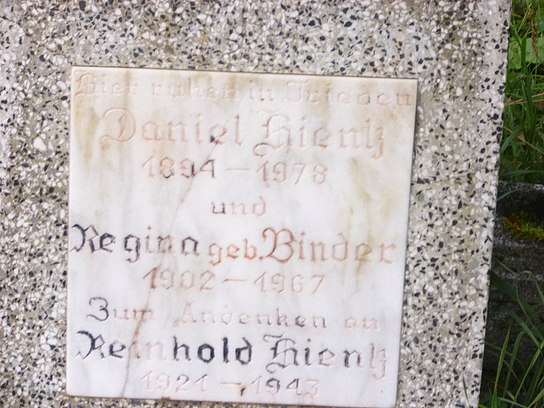 Hier ruhen in Frieden
Daniel Hientz
1894 – 1978
und
Regina geb. Binder
1902 – 1967
Zum Andenken an
Reinhold Hientz
1921 – 1943